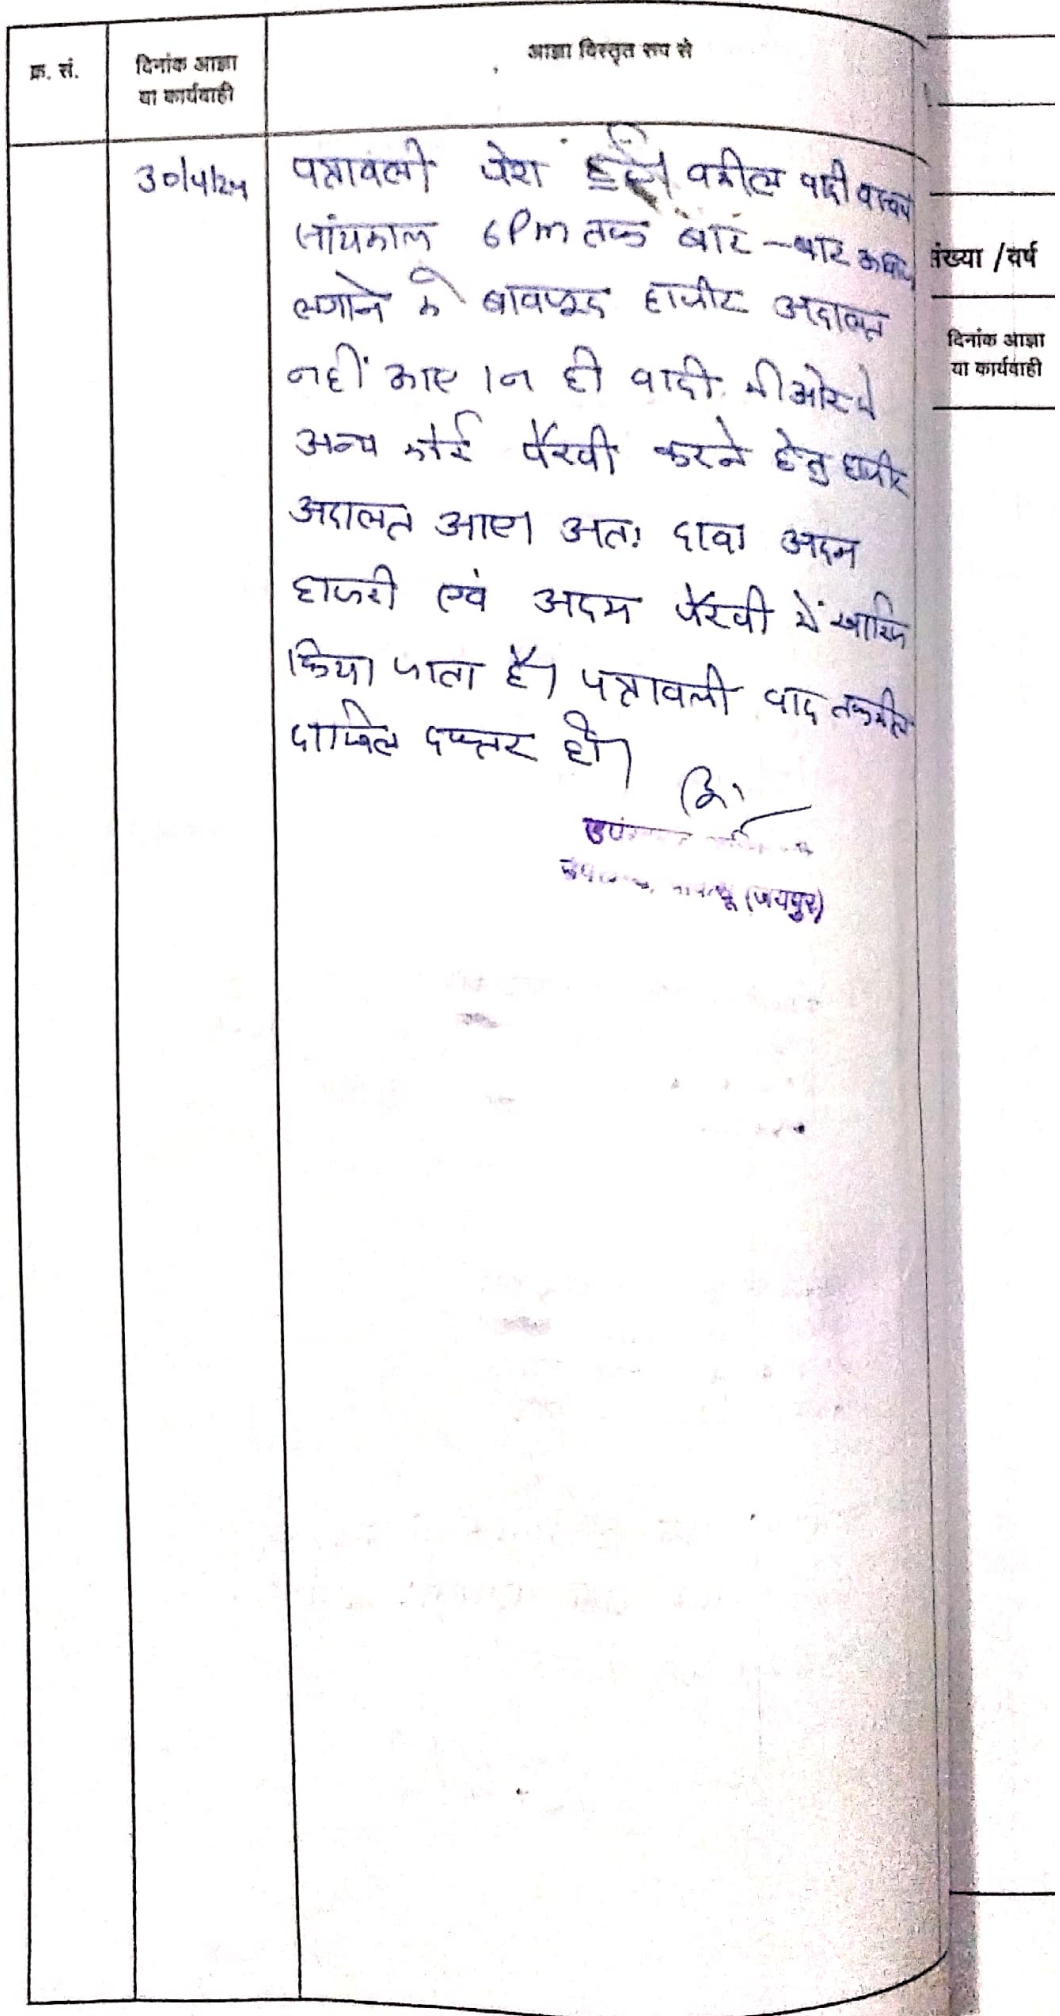 क्र. सं.
दिनांक आज्ञा
या कार्यवाही
आज्ञा विस्तृत रूप से
पत्रावली पेश हुई। वकील वादी
सांयकाल 6 Pm तक बार-बार
लगाने के बावजूद हाजीर अदालत
नहीं आए। न ही वादी की ओर से
अन्य कोई पैरवी करने हेतु हाजीर
अदालत आए। अतः दावा अदम
हाजरी एवं अदम पैरवी में खारिज
किया जाता है। पत्रावली बाद तकमील
दाखिल दफ्तर हो।
(जयपुर)
संख्या / वर्ष
दिनांक आज्ञा
या कार्यवाही